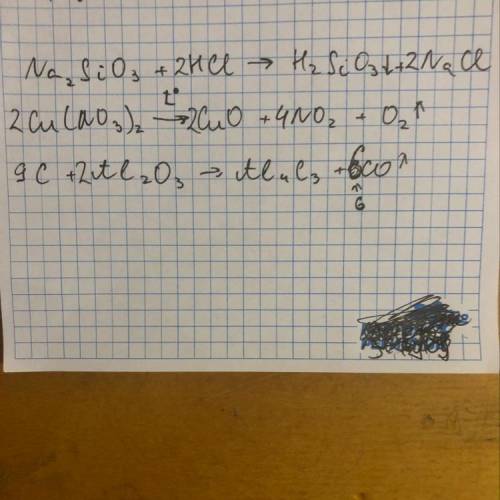 Na₂SiO₃ + 2HCl → H₂SiO₃↓ + 2NaCl
2Cu(NO₃)₂ —t°→ 2CuO + 4NO₂ + O₂↑
9C + 2Al₂O₃ → Al₄C₃ + 6CO↑
↑
6